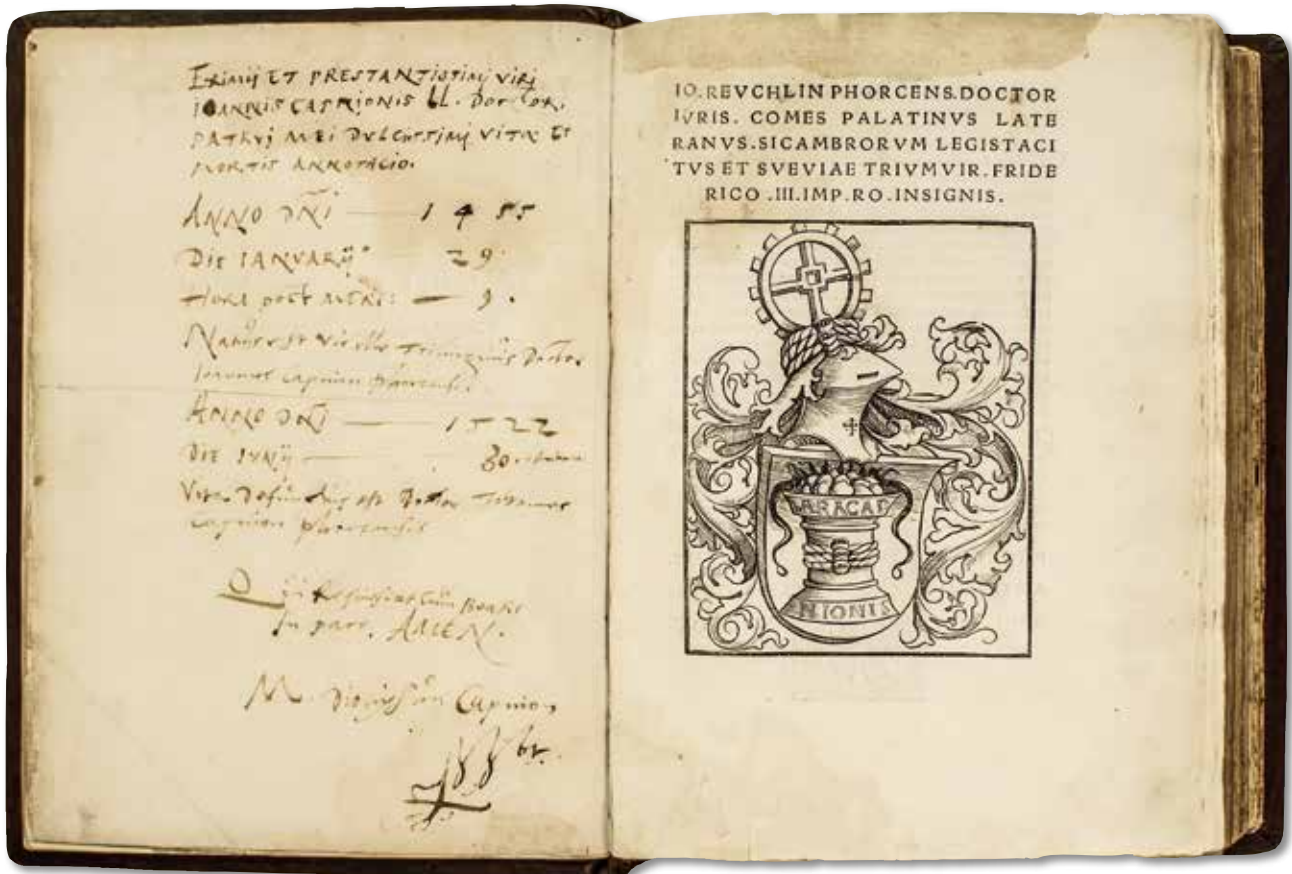 Eximij ET PRESTANTissimj virj
IOANNIS CAPNIONIS LL. Doctor.
PATRVI MEI DVLCissimj VITÆ ET
MORTIS ANNOTACIO.
ANNO DNI — 1 4 55
DIE IANVARIJ 29
HORA post MERI: — 9.
Natus est vir ille Trilinguis Doctor
Ioannes Capnion
ANNO DNI — 1522
DIE IVNIJ — 30
Vita Defunctus est Doctor Ioannes
Capnion
cum Beatis
In pace. AMEN.
M. Dionysius Capnion
IO. REVCHLIN PHORCENS. DOCTOR
IVRIS. COMES PALATINVS LATE
RANVS. SICAMBRORVM LEGISTACI
TVS ET SVEVIAE TRIVMVIR. FRIDE
RICO .III. IMP. RO. INSIGNIS.
ARACAP
NIONIS